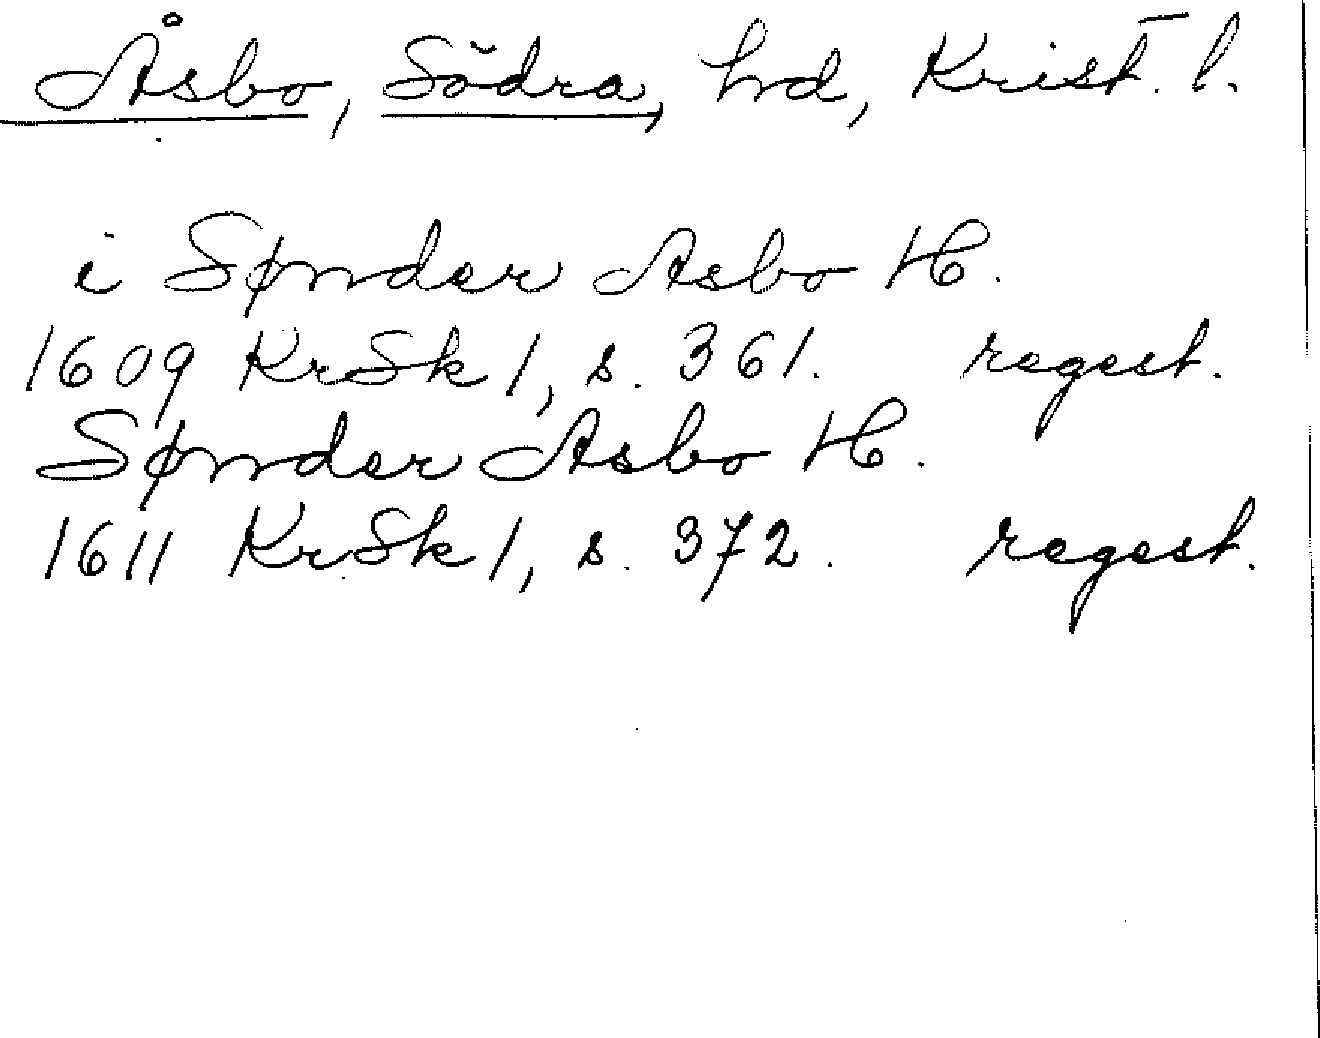 Åsbo, Södra, hd, Krist. l.
i Sønder Asbo H.
1609 KrSk 1, s. 361. regest.
Sønder Asbo H.
1611 KrSk 1, s. 372. regest.